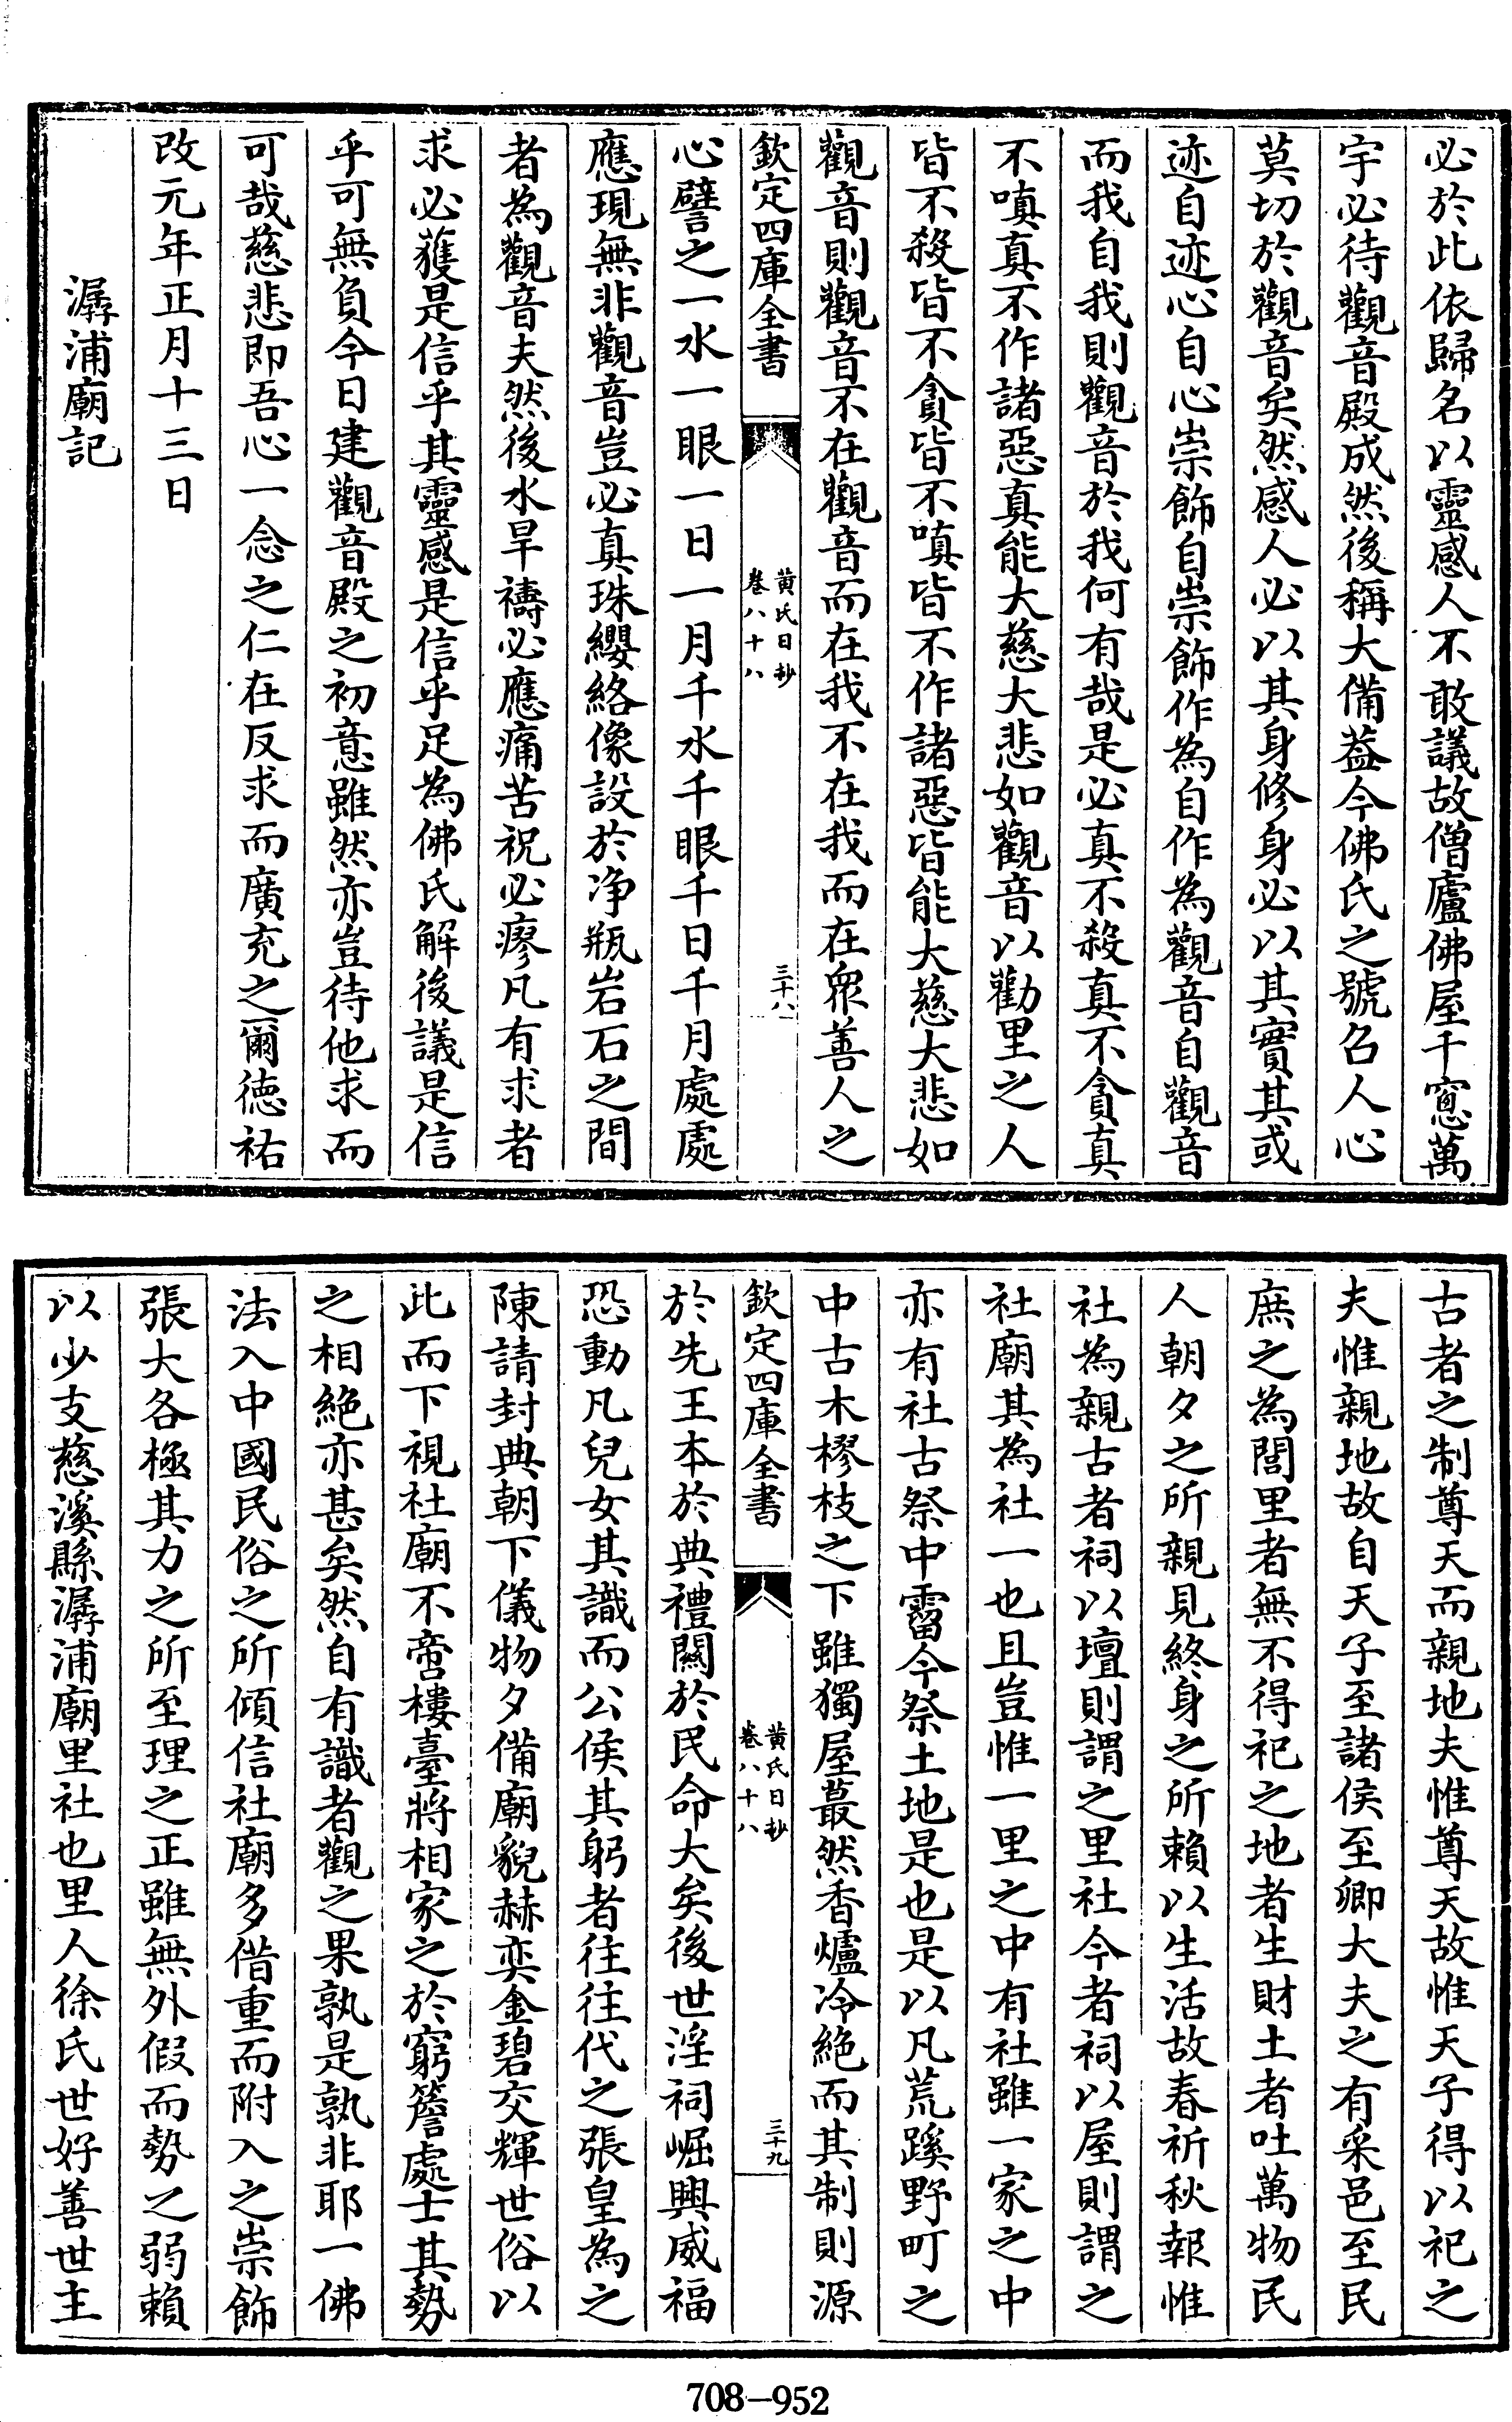 必於此依歸名以靈感人不敢議故僧廬佛屋千窻萬
宇必待觀音殿成然後稱大備葢今佛氏之號召人心
莫切於觀音矣然感人必以其身修身必以其實其或
迹自迹心自心崇飾自崇飾作為自作為觀音自觀音
而我自我則觀音於我何有哉是必真不殺真不貪真
不嗔真不作諸惡真能大慈大悲如觀音以勸里之人
皆不殺皆不貪皆不嗔皆不作諸惡皆能大慈大悲如
觀音則觀音不在觀音而在我不在我而在衆善人之
欽定四庫全書
黄氏日抄
卷八十八
三十八
心譬之一水一眼一日一月千水千眼千日千月處處
應現無非觀音豈必真珠纓絡像設於浄瓶岩石之間
者為觀音夫然後水旱禱必應痛苦祝必瘳凡有求者
求必獲是信乎其靈感是信乎足為佛氏解後議是信
乎可無負今日建觀音殿之初意雖然亦豈待他求而
可哉慈悲即吾心一念之仁在反求而廣充之爾徳祐
改元年正月十三日
潺浦廟記
古者之制尊天而親地夫惟尊天故惟天子得以祀之
夫惟親地故自天子至諸侯至卿大夫之有采邑至民
庶之為閭里者無不得祀之地者生財土者吐萬物民
人朝夕之所親見終身之所賴以生活故春祈秋報惟
社為親古者祠以壇則謂之里社今者祠以屋則謂之
社廟其為社一也且豈惟一里之中有社雖一家之中
亦有社古祭中霤今祭土地是也是以凡荒蹊野町之
中古木樛枝之下雖獨屋蕞然香爐冷絶而其制則源
欽定四庫全書
黄氏日抄
卷八十八
三十九
於先王本於典禮闗於民命大矣後世淫祠崛興威福
恐動凡兒女其識而公侯其躬者往往代之張皇為之
陳請封典朝下儀物夕備廟貌赫奕金碧交輝世俗以
此而下視社廟不啻樓臺將相家之於窮簷處士其勢
之相絶亦甚矣然自有識者觀之果孰是孰非耶一佛
法入中國民俗之所傾信社廟多借重而附入之崇飾
張大各極其力之所至理之正雖無外假而勢之弱賴
以少支慈溪縣潺浦廟里社也里人徐氏世好善世主
708-952